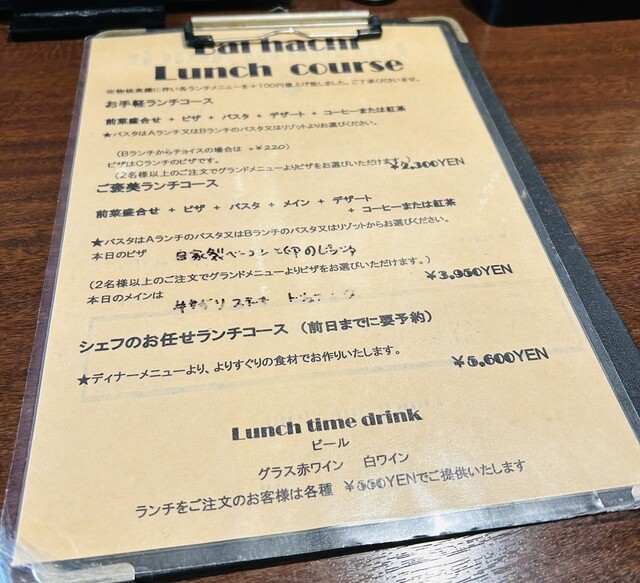 Bar hachi
Lunch course
※物価高騰に伴い各ランチメニューを+100円値上げ致しました。ご了承くださいませ。
お手軽ランチコース
前菜盛合せ + ピザ + パスタ + デザート + コーヒーまたは紅茶
★パスタはAランチ又はBランチのパスタ又はリゾットよりお選びください。
(Bランチからチョイスの場合は +¥220)
ピザはCランチのピザです。
(2名様以上のご注文でグランドメニューよりピザをお選びいただけます。) ¥2,300YEN
ご褒美ランチコース
前菜盛合せ + ピザ + パスタ + メイン + デザート
+ コーヒーまたは紅茶
★パスタはAランチ又はBランチのパスタ又はリゾットからお選びください。
本日のピザ 自家製ベーコンと卵の
(2名様以上のご注文でグランドメニューよりピザをお選びいただけます。)
¥3,950YEN
本日のメインは
シェフのお任せランチコース (前日までに要予約)
★ディナーメニューより、よりすぐりの食材でお作りいたします。
¥5,600YEN
Lunch time drink
ビール
グラス赤ワイン 白ワイン
ランチをご注文のお客様は各種 ¥550YENでご提供いたします